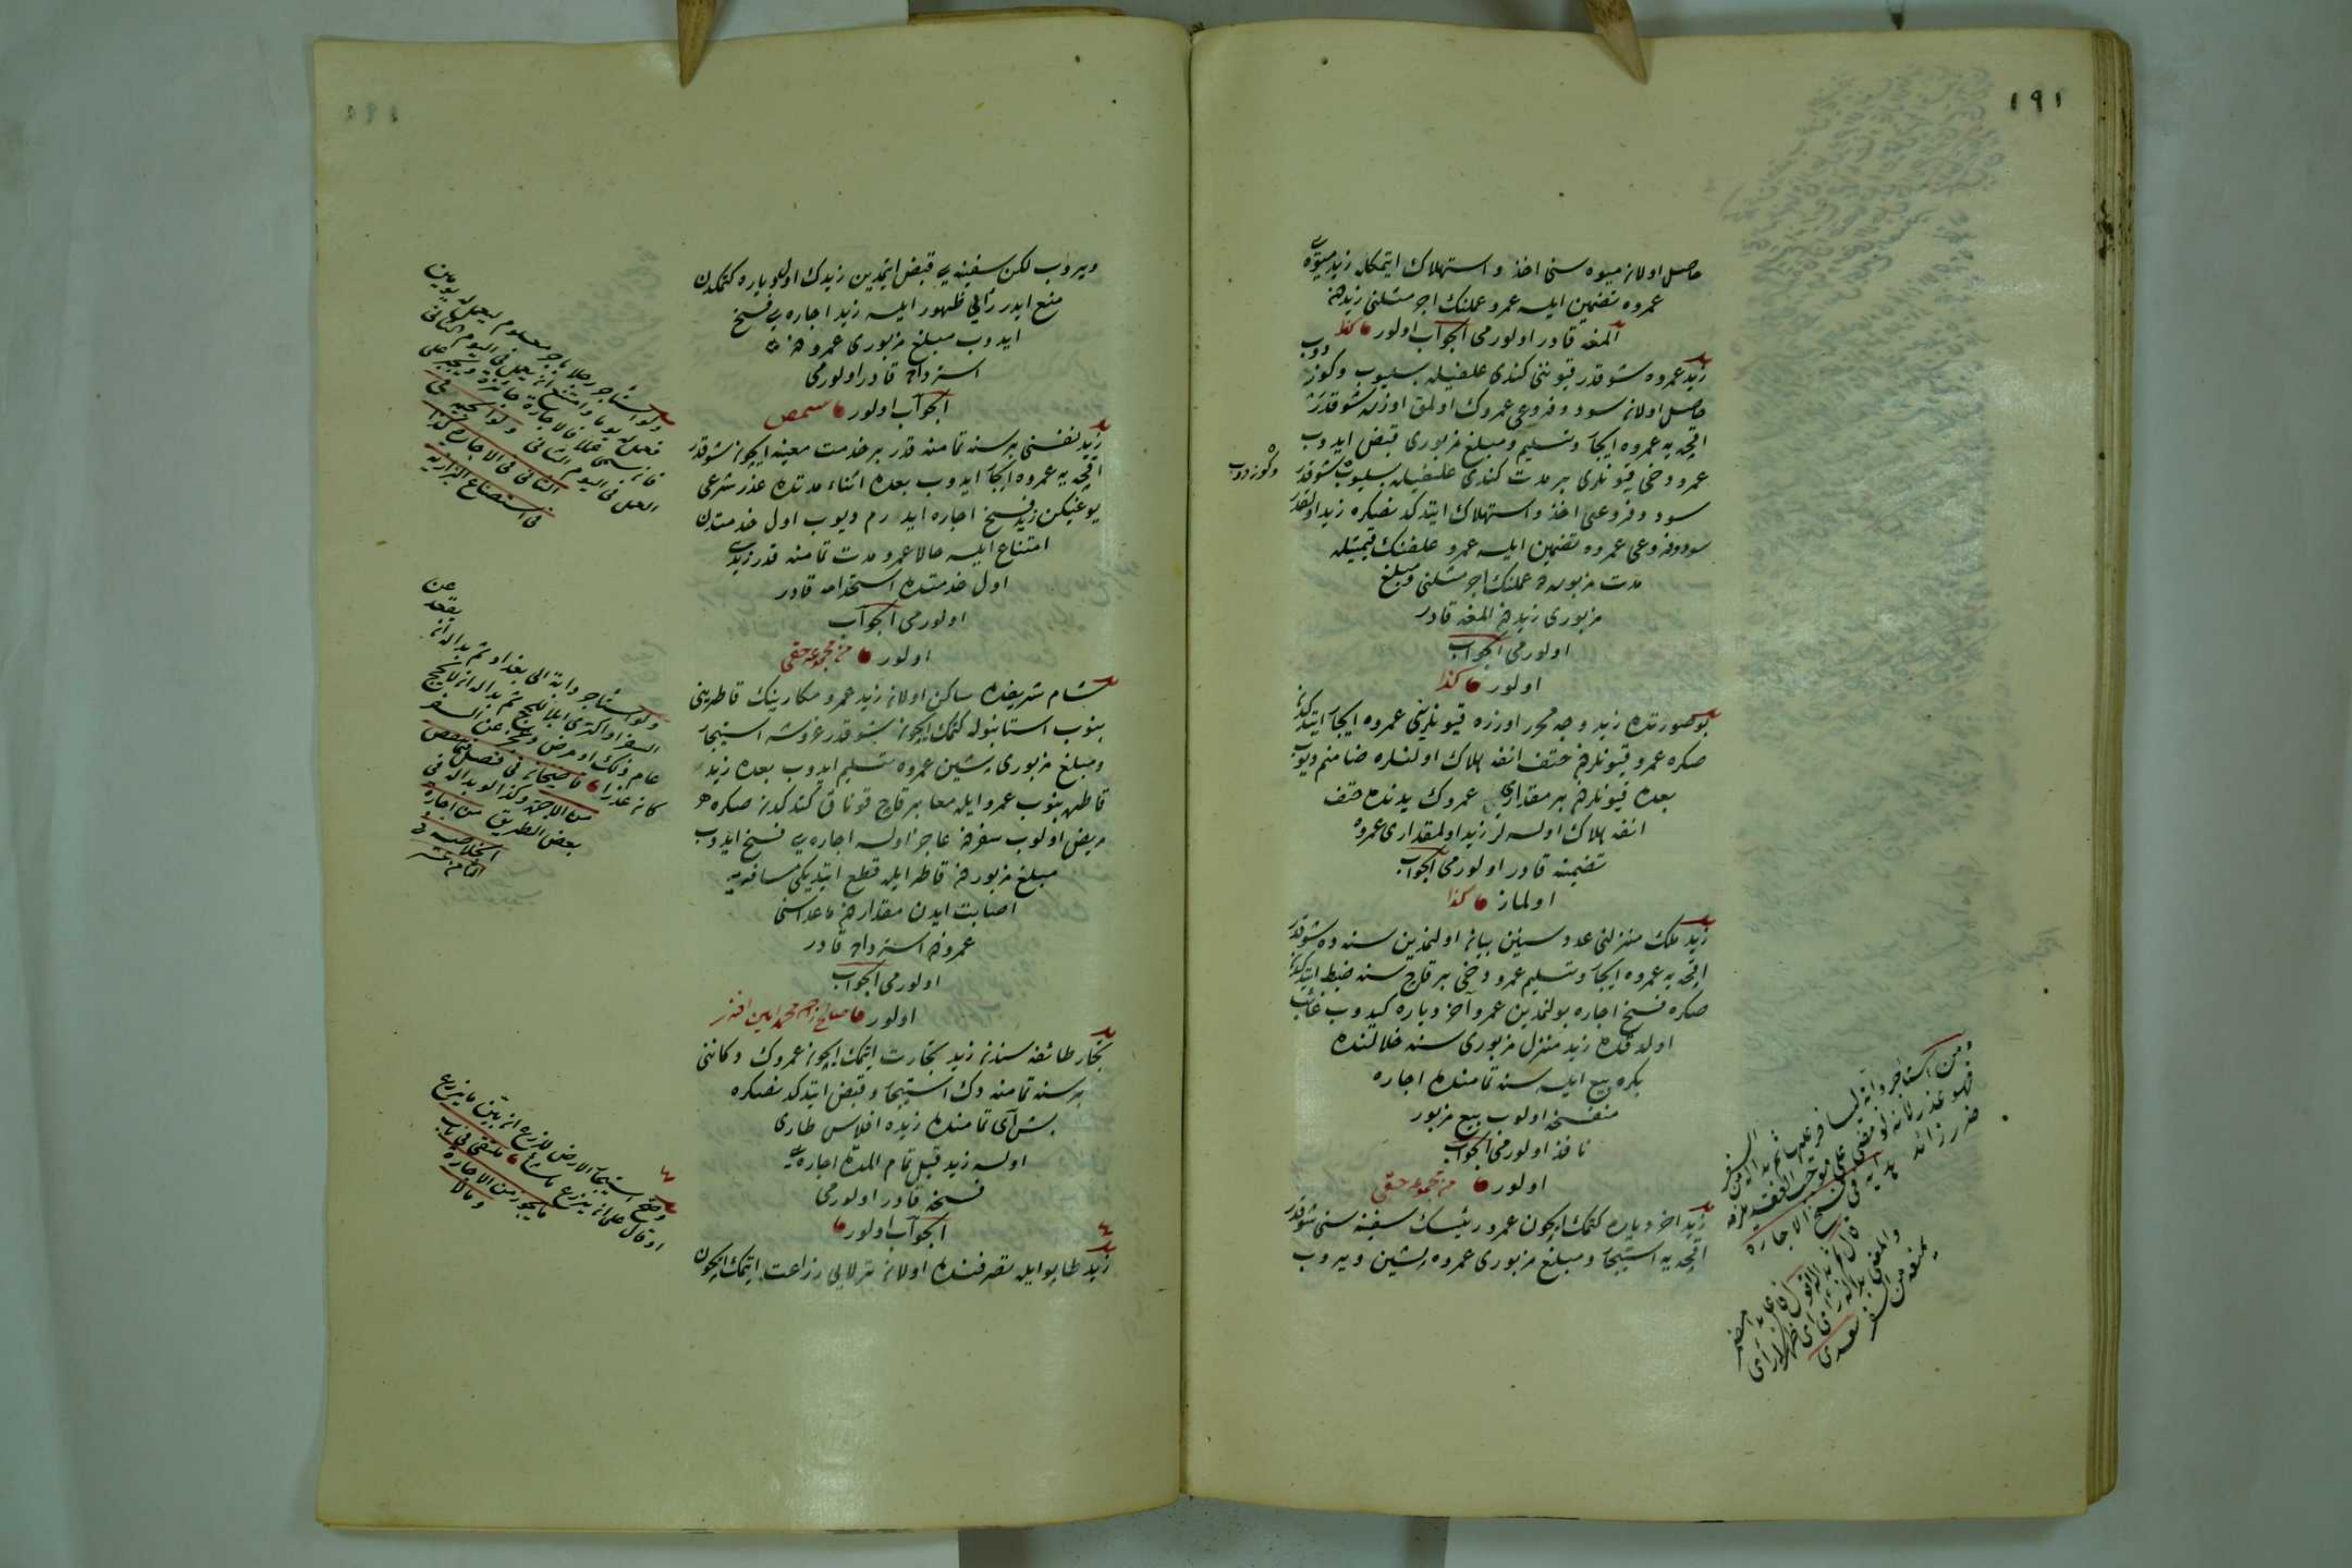 ١٩١
حاصل اولان ميوه سنى اخذ و استهلاك ايتمكله زيد ميوه‌يى
عمروه تضمين ايلسه عمرو عملنك اجر مثلنى زيددن
المغه قادر اولورمى الجواب اولور كذا
زيد عمروه شو قدر قيوننى كندى علفيله بسليوب وكوزدوب
حاصل اولان سود و فروعى عمروك اولمق اوزره شو قدر
اقچه يه عمروه ايجار وتسليم ومبلغ مزبورى قبض ايدوب
عمرو دخى قيونلرى بر مدت كندى علفيله بسليوب شو قدر
وكوزدوب
سود و فروعنى اخذ و استهلاك ايتدكدنصكره زيد اولقدر
سود و فروعى عمروه تضمين ايلسه عمرو علفنك قيمتيله
مدت مزبوره ده عملنك اجر مثلنى ومبلغ
مزبورى زيددن المغه قادر
اولورمى الجواب
اولور كذا
بو صورتده زيد وجه محرر اوزره قيونلرينى عمروه ايجار ايتدكدن
صكره عمرو قيونلردن حتف انفه هلاك اولنلره ضامنم ديوب
بعده قيونلردن بر مقدارى عمروك يدنده حتف
انفه هلاك اولسه لر زيد اولمقدارى عمروه
تضمينه قادر اولورمى الجواب
اولماز كذا
زيد ملك منزلنى عدد سنين بيان اولنمدين سنه ده شو قدر
اقچه يه عمروه ايجار وتسليم عمرو دخى بر قاچ سنه ضبط ايتدكدن
صكره فسخ اجاره بولنمدين عمرو آخر دياره كيدوب غائب
اولدقده زيد منزل مزبورى سنه خلالنده
بكره بيع ايلسه سنه تمامنده اجاره
منفسخه اولوب بيع مزبور
نافذ اولورمى الجواب
اولور من مجموعه حقى
زيد اخر دياره كتمك ايچون عمرو رئيسك سفينه سنى شو قدر
اقچه يه استيجار ومبلغ مزبورى عمروه پشين ويروب
ومن استأجر دابة ليسافر عليها ثم بدا له من السفر
فهو عذر لانه لو مضى على موجب العقد يلزمه
ضرر زائد هدايه فى فسخ الاجاره
يمنعه من السفر سعدى
ويروب لكن سفينه يى قبض ايتمدين زيدك اول دياره كتمكدن
منع ايدر رأيى ظهور ايلسه زيد اجاره يى فسخ
ايدوب مبلغ مزبورى عمرودن
استرداده قادر اولورمى
الجواب اولور
زيد نفسنى بر سنه تمامنه قدر بر خدمت معينه ايچون شو قدر
اقچه يه عمروه ايجار ايدوب بعده اثناء مدتده عذر شرعى
يوغيكن زيد فسخ اجاره ايدرم ديوب اول خدمتدن
امتناع ايلسه حالا عمرو مدت تمامنه قدر زيدى
اول خدمتده استخدامه قادر
اولورمى الجواب
اولور من مجموعه حقى
شام شريفده ساكن اولان زيد عمرو مكارينك قاطرينى
بنوب استانبوله كتمك ايچون شو قدر غروشه استيجار
ومبلغ مزبورى پشين عمروه تسليم ايدوب بعده زيد
قاطره بنوب عمرو ايله معا بر قاچ قوناق كتدكدن صكره
مريض اولوب سفردن عاجز اولسه اجاره يى فسخ ايدوب
مبلغ مزبوردن قاطر ايله قطع ايتديكى مسافه يه
اصابت ايدن مقداردن ماعداسنى
عمرودن استرداده قادر
اولورمى الجواب
اولور
تجار طائفه سندن زيد تجارت ايتمك ايچون عمروك دكاننى
بر سنه تمامنه دك استيجار وقبض ايتدكدنصكره
بش آى تمامنده زيده افلاس طارى
اولسه زيد قبل تمام المده اجاره يى
فسخه قادر اولورمى
الجواب اولور
زيد طاپو ايله تصرفنده اولان ترلايى زراعت ايتمك ايچون
ولو استأجر رجلا باجر معلوم ليعمل له يومين
فعمل له يوما وامتنع ان يعمل فى اليوم الثانى
العمل فى اليوم الثانى
فى استصناع البزازيه
ولو استأجر دابة الى بغداد ثم بدا له ان يقعد عن
السفر او اكترى ابلا للحج ثم بدا له ان لا يحج
عام ذلك او مرض وعجز عن السفر
كان عذرا قاضيخان فى فصل
من الاجرة وكذا لو بدا له فى
بعض الطريق من اجاره
الخلاصه فى
وصح استيجار الارض للزرع ان بين ما يزرع
او قال على ان يزرع ما شاء ملتقى فى باب
ما يجوز من الاجاره
وما لا